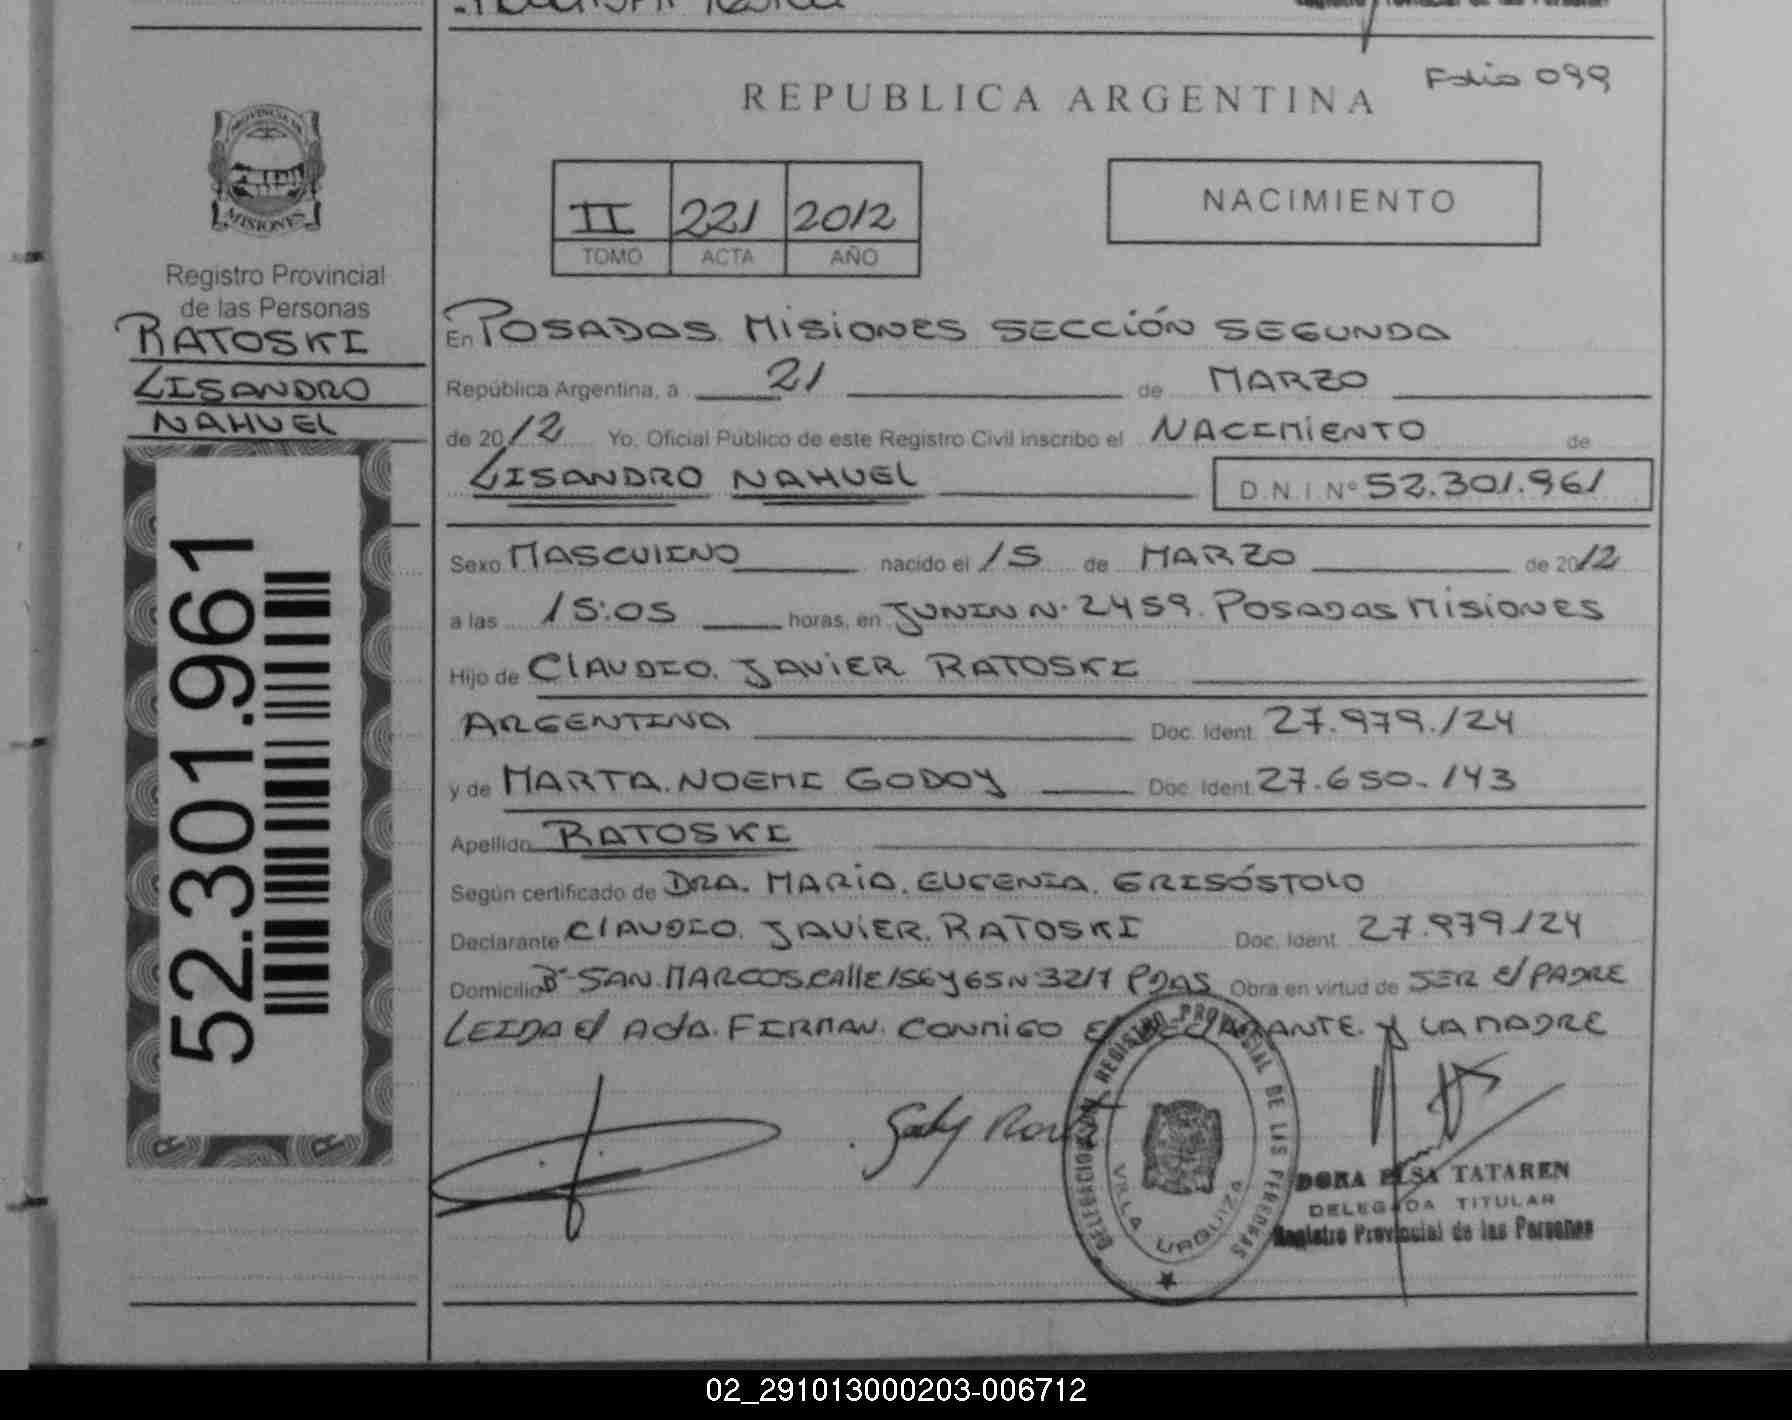 Folio 099
REPUBLICA ARGENTINA
PROVINCIA DE
MISIONES
Registro Provincial
de las Personas
RATOSKI
LISANDRO
NAHUEL
52.301.961
II 221 2012
TOMO ACTA AÑO
NACIMIENTO
En POSADAS MISIONES SECCIÓN SEGUNDA
República Argentina, a 21 de MARZO
de 2012 Yo, Oficial Público de este Registro Civil inscribo el NACIMIENTO de
LISANDRO NAHUEL D.N.I Nº 52.301.961
Sexo MASCULINO nacido el 15 de MARZO de 2012
a las 15:05 horas, en JUNIN N. 2459. POSADAS MISIONES
Hijo de CLAUDIO. JAVIER RATOSKI
ARGENTINA Doc. Ident. 27.979.124
y de MARTA. NOEMI GODOY Doc. Ident. 27.650.143
Apellido RATOSKI
Según certificado de DRA. MARIA. EUGENIA. GRISÓSTOLO
Declarante CLAUDIO. JAVIER. RATOSKI Doc. Ident. 27.979124
Domicilio Bº SAN. MARCOS. calle 156 y 65 N 3217 PDAS Obra en virtud de SER el PADRE
LEIDA el Acta. FIRMAN. CONMIGO EL DECLARANTE. y LA MADRE
DELEGACION REGISTRO PROVINCIAL DE LAS PERSONAS
VILLA URQUIZA
DORA ELSA TATAREN
DELEGADA TITULAR
Registro Provincial de las Personas
02_291013000203-006712